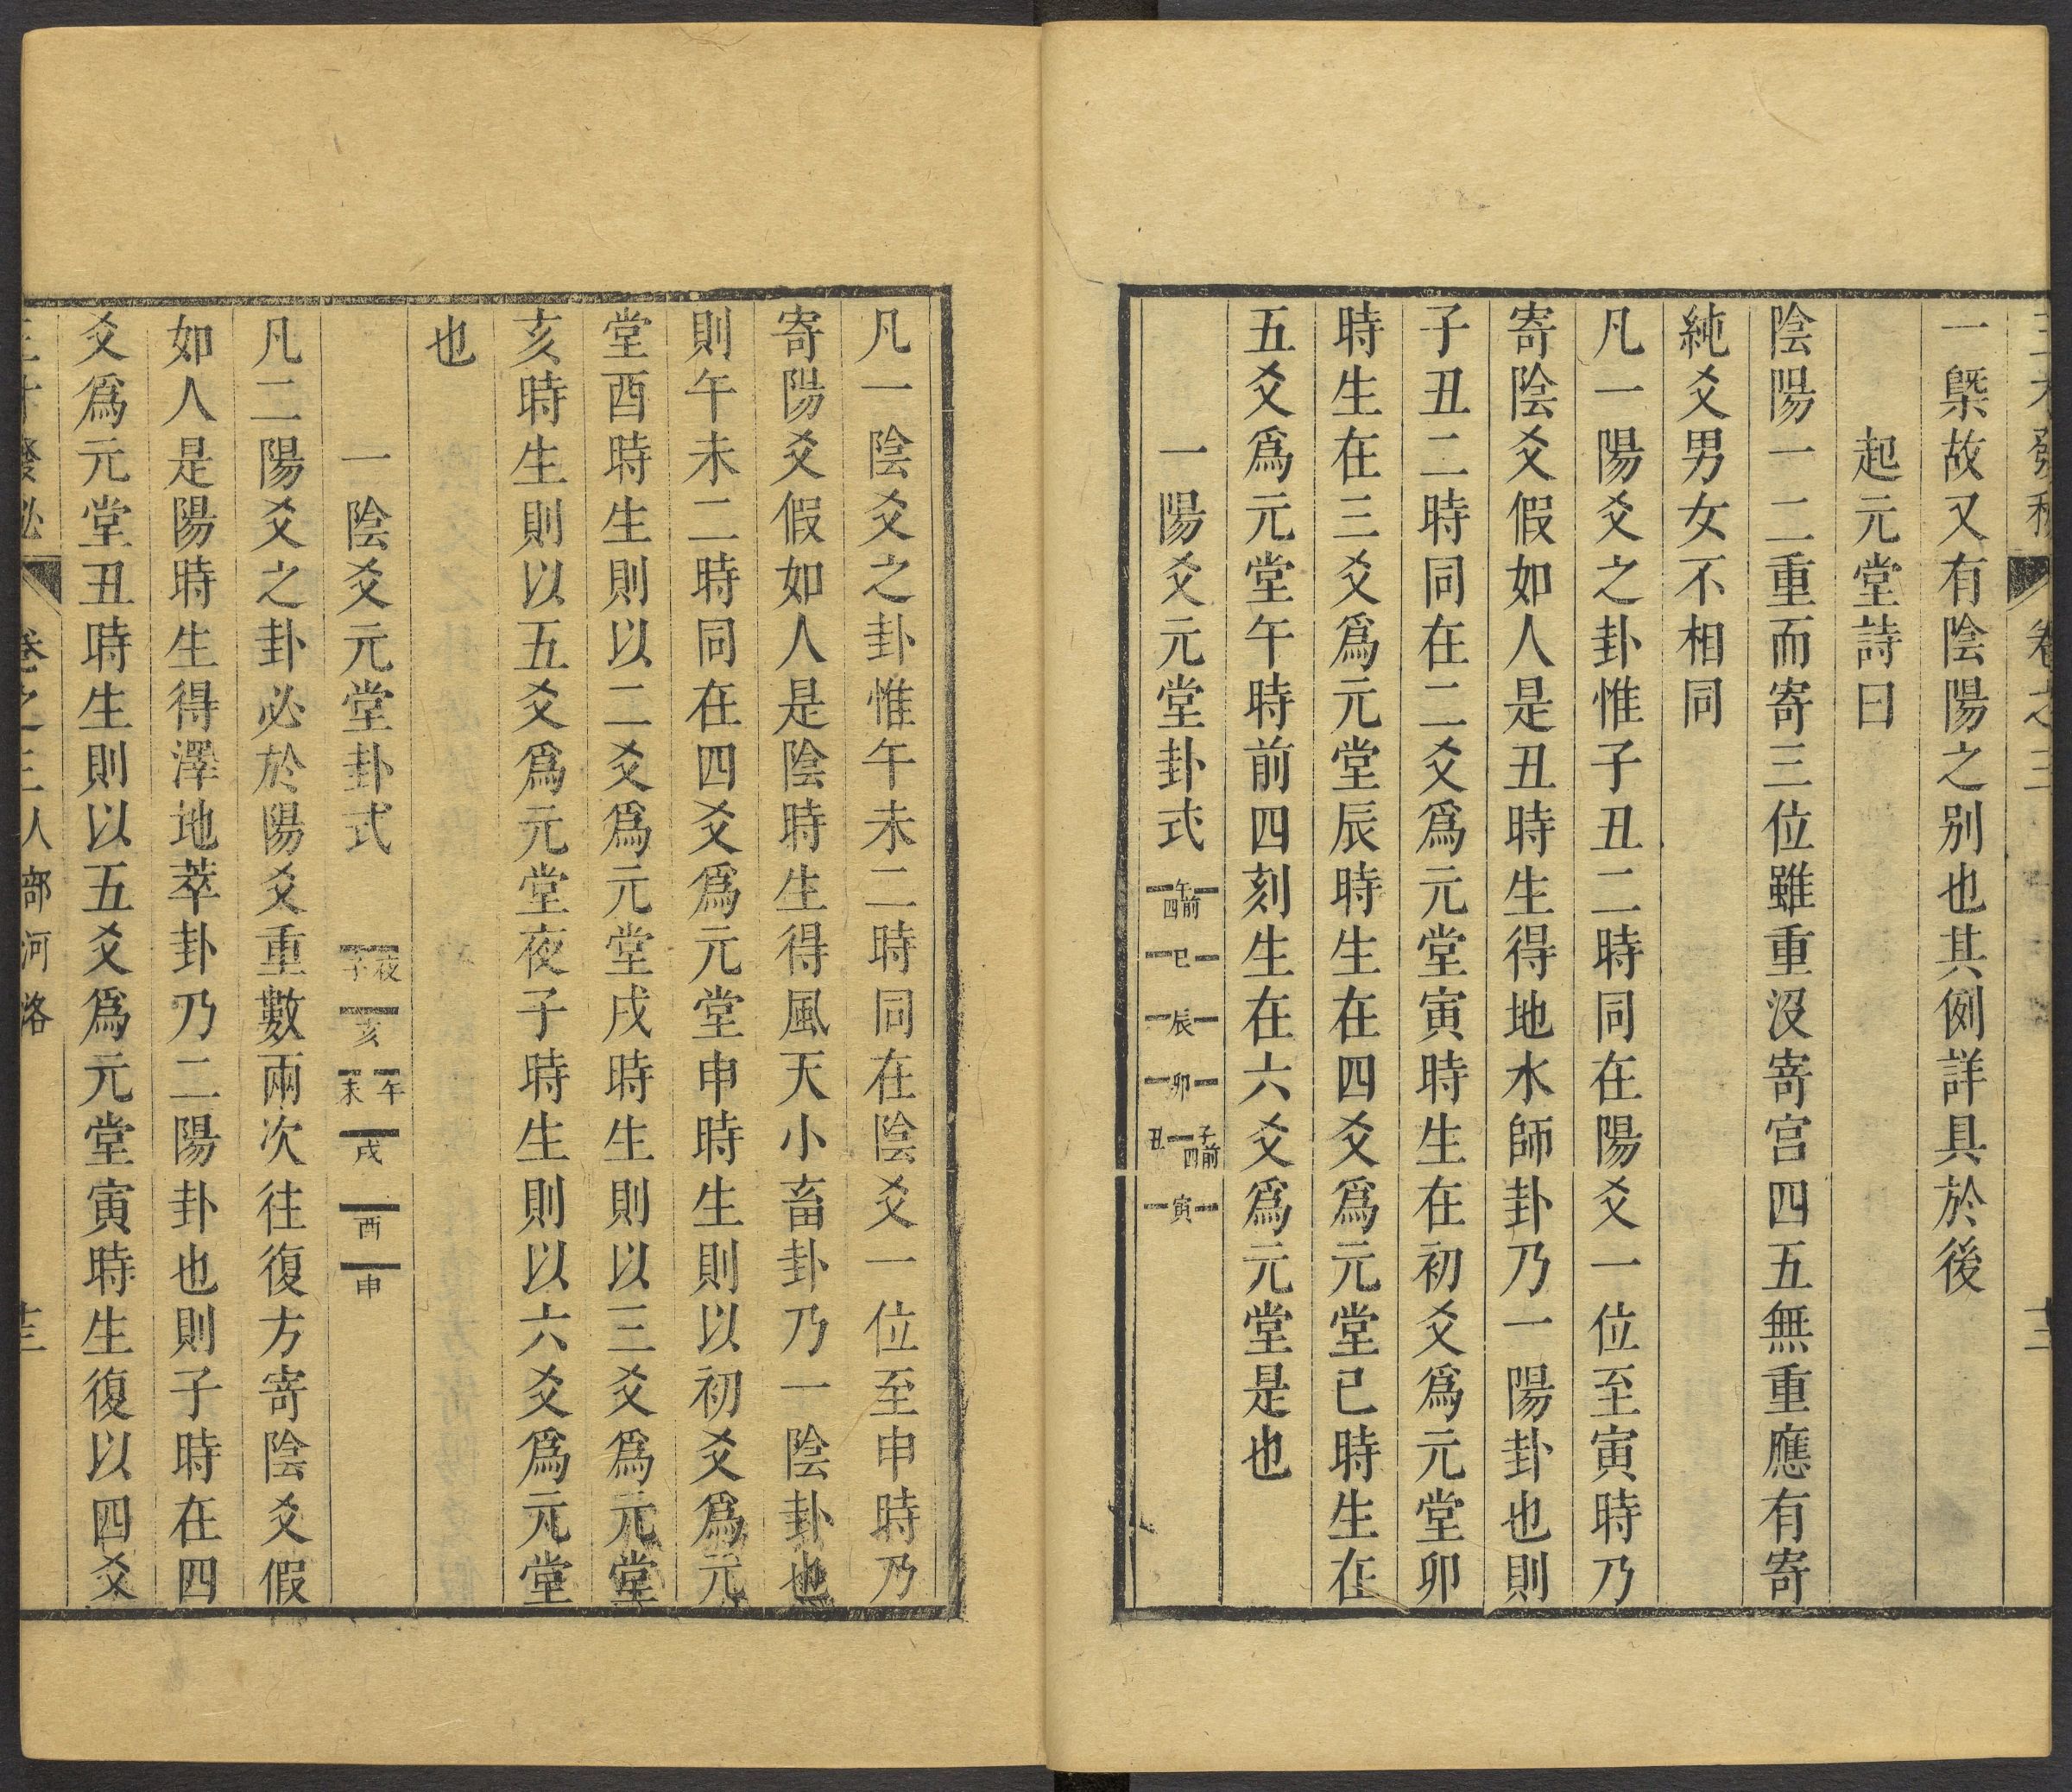 卷之三
一槩故又有陰陽之别也其例詳具於後
起元堂詩曰
陰陽一二重而寄三位雖重沒寄宮四五無重應有寄
純爻男女不相同
凡一陽爻之卦惟子丑二時同在陽爻一位至寅時乃
寄陰爻假如人是丑時生得地水師卦乃一陽卦也則
子丑二時同在二爻爲元堂寅時生在初爻爲元堂卯
時生在三爻爲元堂辰時生在四爻爲元堂巳時生在
五爻爲元堂午時前四刻生在六爻爲元堂是也
一陽爻元堂卦式
午前四
巳
辰
卯
子前四 丑
寅
凡一陰爻之卦惟午未二時同在陰爻一位至申時乃
寄陽爻假如人是陰時生得風天小畜卦乃一陰卦也
則午未二時同在四爻爲元堂申時生則以初爻爲元
堂酉時生則以二爻爲元堂戌時生則以三爻爲元堂
亥時生則以五爻爲元堂夜子時生則以六爻爲元堂
也
一陰爻元堂卦式
夜子
亥
午 未
戌
酉
申
凡二陽爻之卦必於陽爻重數兩次往復方寄陰爻假
如人是陽時生得澤地萃卦乃二陽卦也則子時在四
爻爲元堂丑時生則以五爻爲元堂寅時生復以四爻
卷之三人部河洛